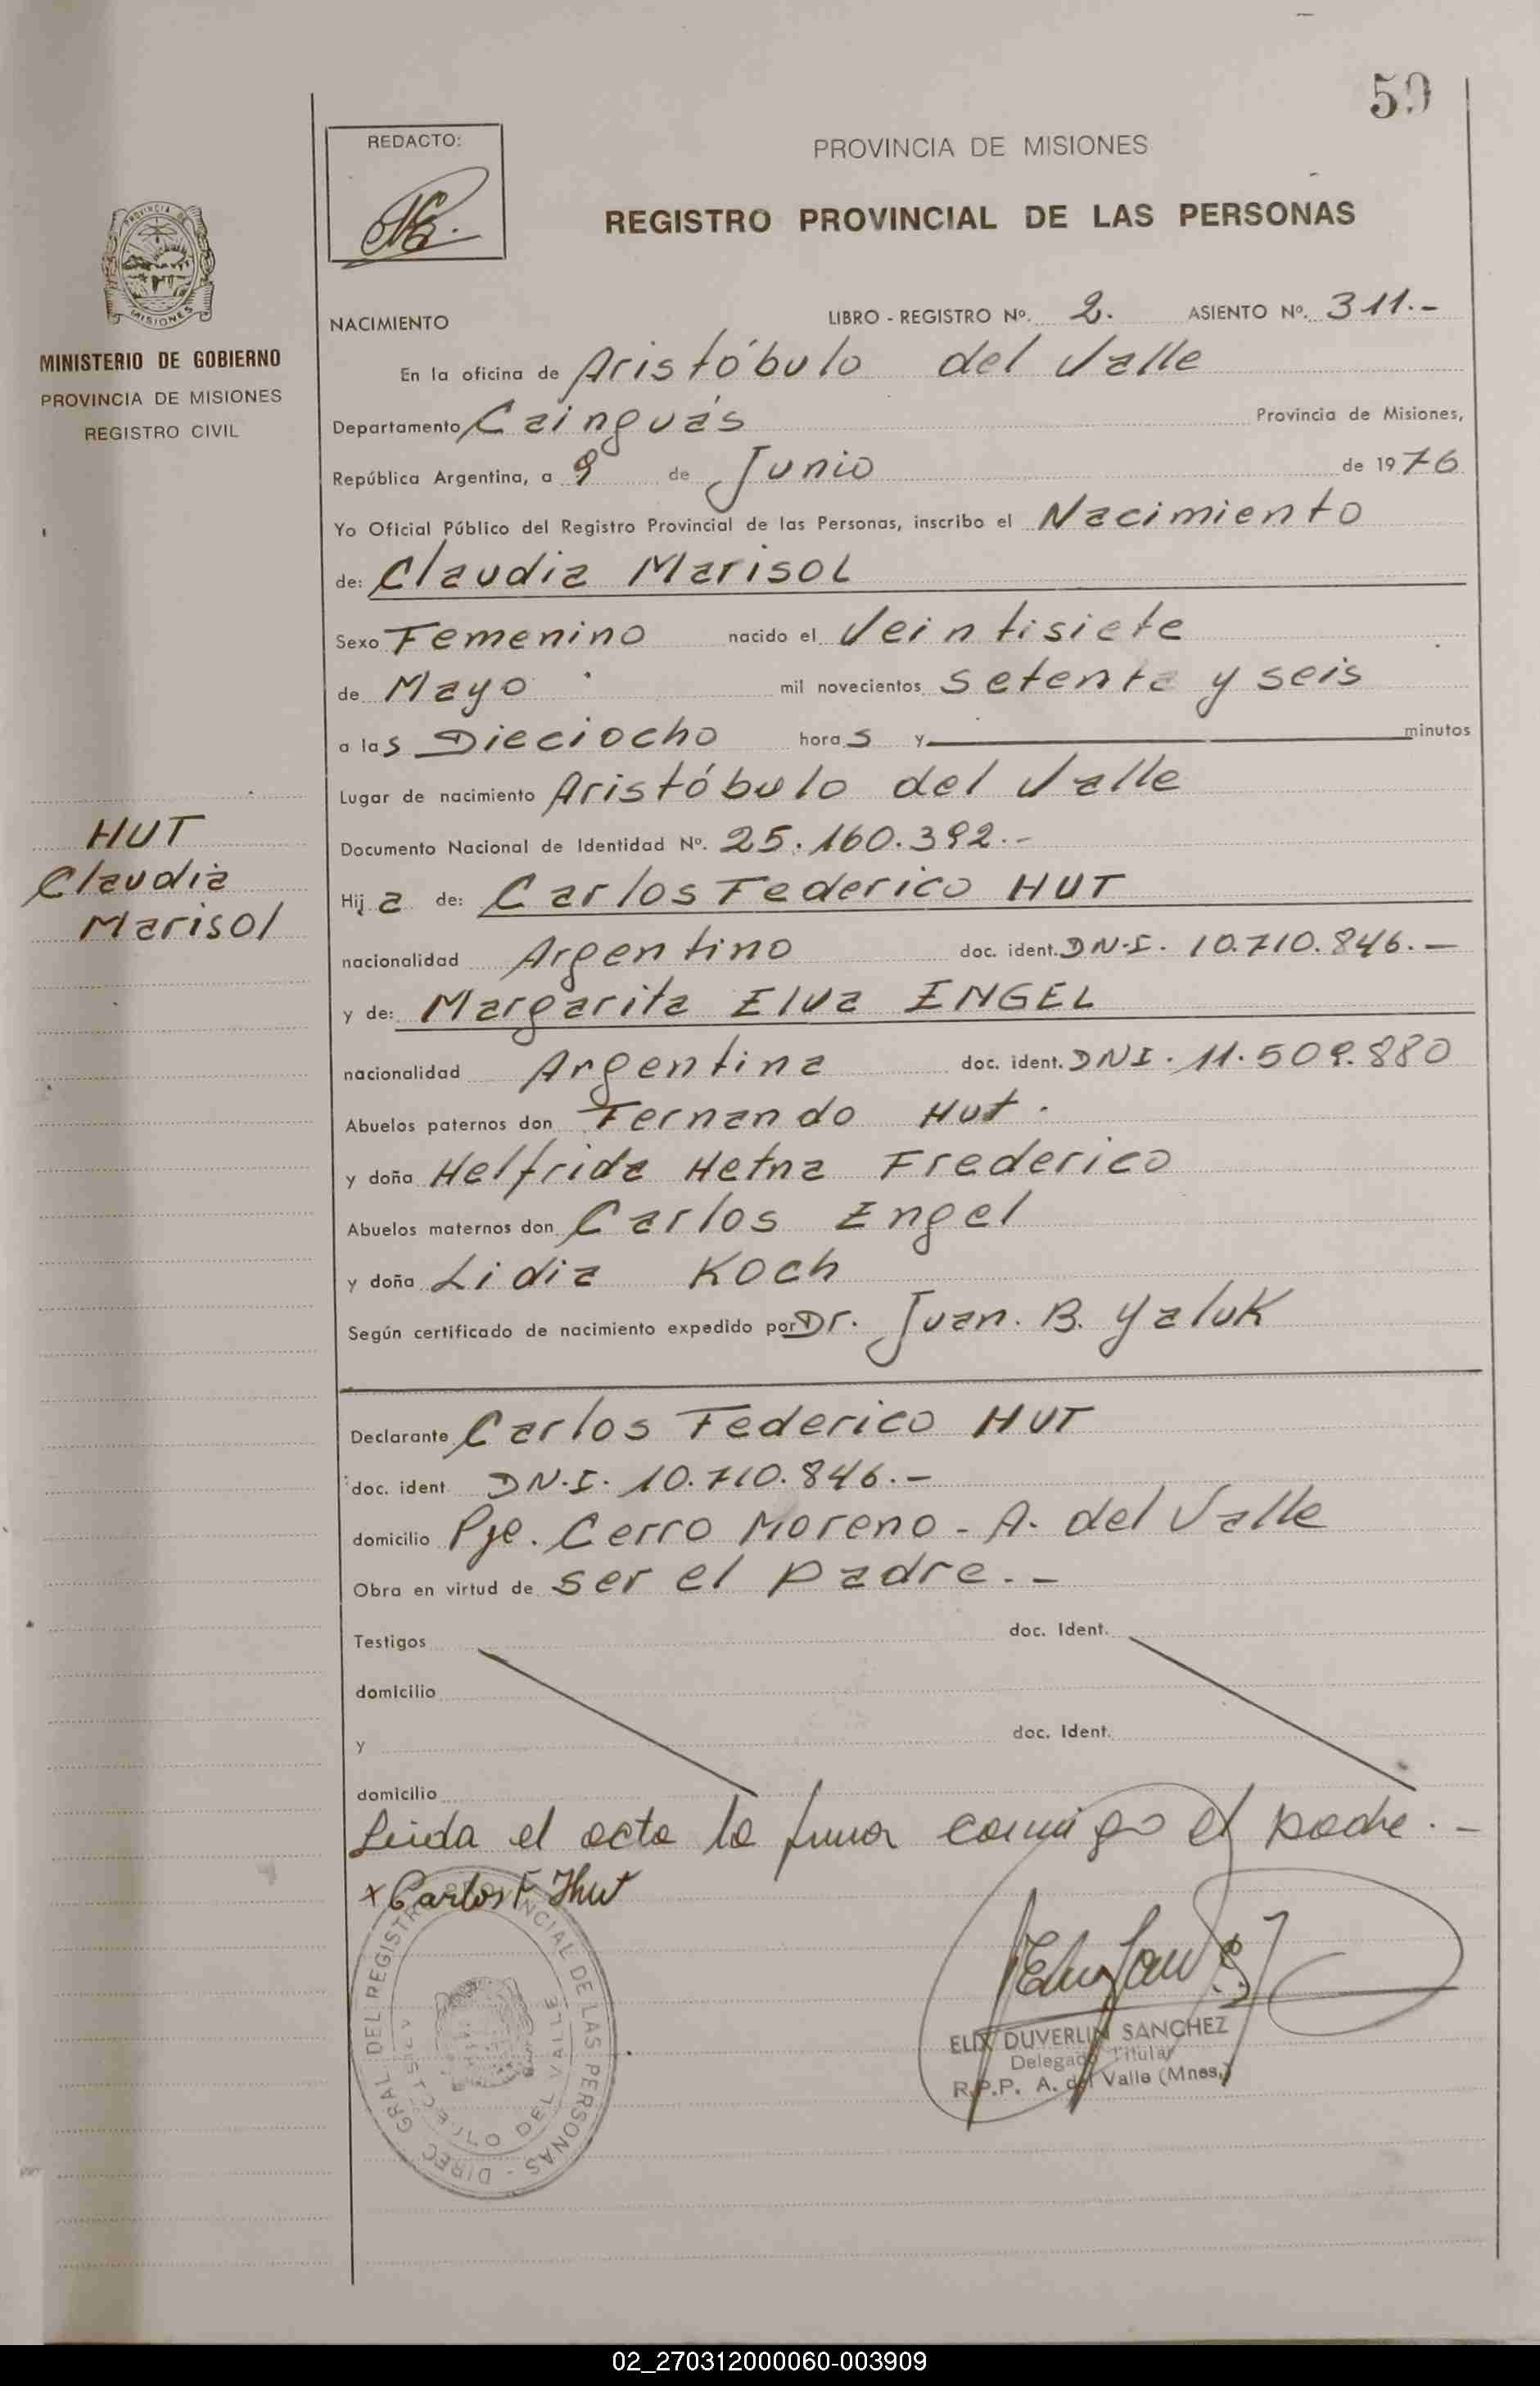 59
REDACTO:
PROVINCIA DE MISIONES
REGISTRO PROVINCIAL DE LAS PERSONAS
PROVINCIA DE
MISIONES
MINISTERIO DE GOBIERNO
PROVINCIA DE MISIONES
REGISTRO CIVIL
NACIMIENTO
LIBRO - REGISTRO Nº. 2. ASIENTO Nº. 311.-
En la oficina de Aristóbulo del Valle
Departamento Cainguás Provincia de Misiones,
República Argentina, a 9 de Junio de 1976
Yo Oficial Público del Registro Provincial de las Personas, inscribo el Nacimiento
de: Claudia Marisol
Sexo Femenino nacido el Veintisiete
de Mayo mil novecientos setenta y seis
a las Dieciocho horas y minutos
Lugar de nacimiento Aristóbulo del Valle
HUT
Claudia
Marisol
Documento Nacional de Identidad Nº. 25.160.392.-
Hija de: Carlos Federico HUT
nacionalidad Argentino doc. ident. DN.I. 10.710.846.-
y de: Margarita Elva ENGEL
nacionalidad Argentina doc. ident. DNI. 11.509.880
Abuelos paternos don Fernando Hut.
y doña Helfrida Hetna Frederico
Abuelos maternos don Carlos Engel
y doña Lidia Koch
Según certificado de nacimiento expedido por Dr. Juan. B. Yaluk
Declarante Carlos Federico HUT
doc. ident DN.I. 10.710.846.-
domicilio Pje. Cerro Moreno - A. del Valle
Obra en virtud de ser el padre.-
Testigos doc. Ident.
domicilio
y doc. Ident.
domicilio
Leida el acta la firma conmigo el padre.-
x Carlos F. Hut
DIREC. GRAL. DEL REGISTRO PROVINCIAL DE LAS PERSONAS -
DEL VALLE
ELIX DUVERLIN SANCHEZ
Delegado Titular
R.P.P. A. del Valle (Mnes.)
02_270312000060-003909